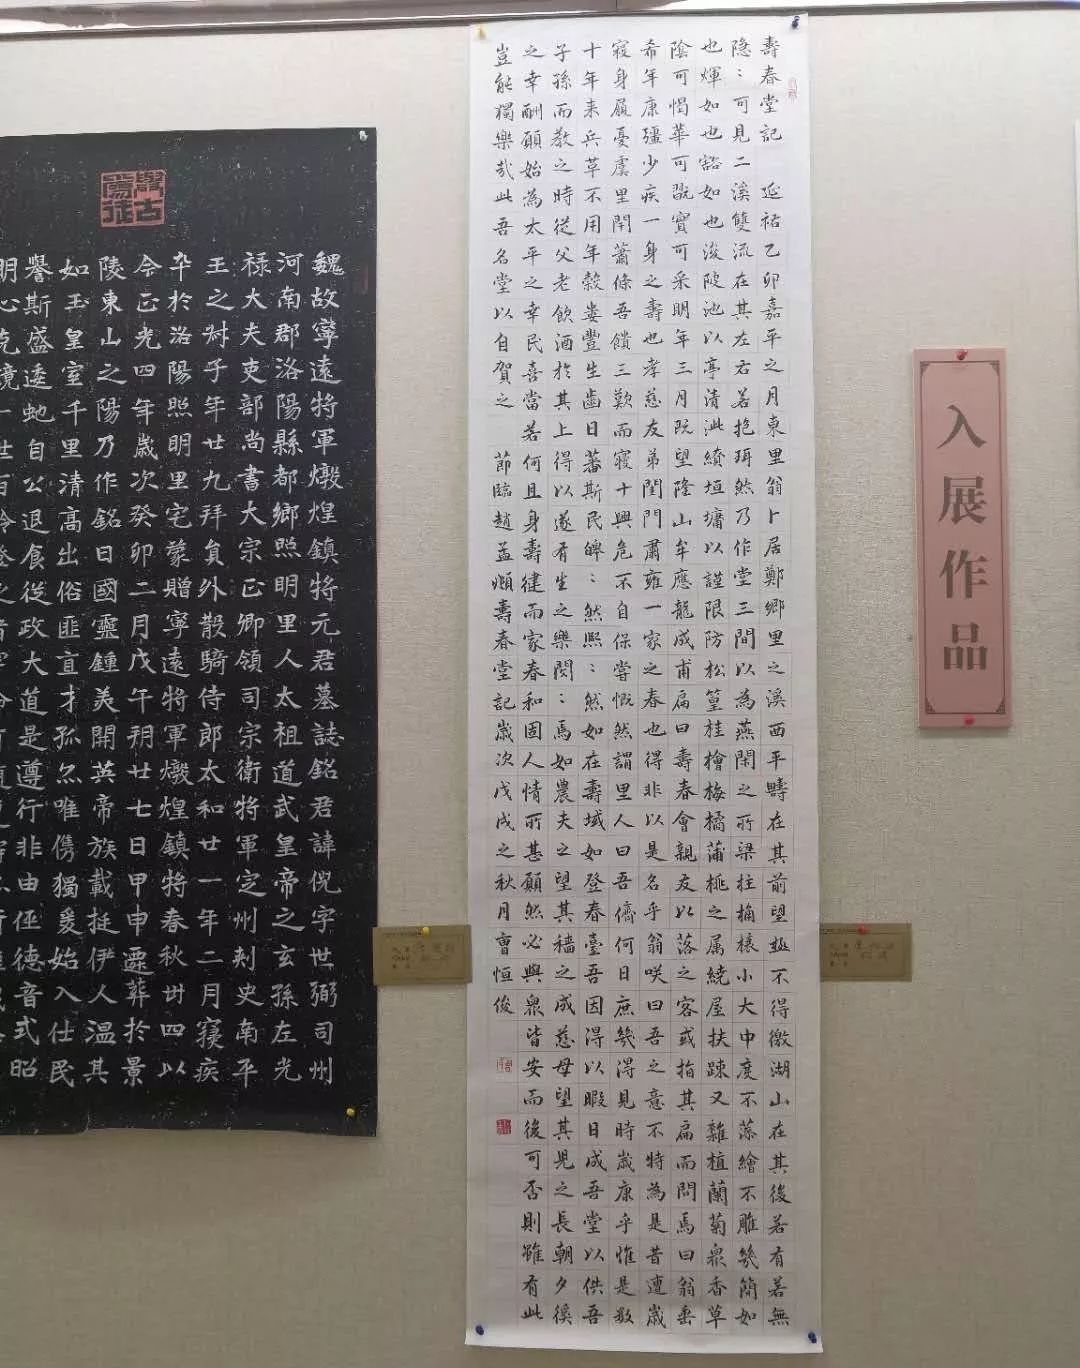 壽春堂記 延祐乙卯嘉平之月東里翁卜居鄭鄉里之溪西平疇在其前望極不得微湖山在其後若有若無
隐：可見二溪雙流在其左右若抱珥然乃作堂三間以為燕閑之所梁柱桷榱小大中度不藻繪不雕幾簡如
也煇如也豁如也浚陂池以亭清泚繚垣墉以謹限防松篁桂檜梅橘蒲桃之属繞屋扶疎又雜植蘭菊眾香草
陰可愒華可翫實可采明年三月既望隆山牟應龍成甫扁曰壽春會親友以落之客或指其扁而問焉曰翁垂
希年康彊少疾一身之壽也孝慈友弟閨門肅雍一家之春也得非以是名乎翁咲曰吾之意不特為是昔遭歲
寢身履憂虞里閈蕭條吾饋三歎而寢十興危不自保嘗慨然謂里人曰吾儕何日庶幾得見時歲康乎惟是數
十年来兵革不用年穀娄豐生齒日蕃斯民皞：然熙：然如在壽域如登春臺吾因得以暇日成吾堂以供吾
子孫而教之時從父老飲酒於其上得以遂有生之樂閔：焉如農夫之望其穡之成慈母望其兒之長朝夕徯
之幸酬願始為太平之幸民喜當若何且身壽健而家春和固人情所甚願然必與眾皆安而後可否則雖有此
豈能獨樂哉此吾名堂以自賀之 節臨趙孟頫壽春堂記歲次戊戌之秋月曹恒俊
入展作品
魏故寧遠將軍燉煌鎮將元君墓誌銘君諱倪字世弼司州
河南郡洛陽縣都鄉照明里人太祖道武皇帝之玄孫左光
禄大夫吏部尚書大宗正卿領司宗衛將軍定州刺史南平
王之叔子年廿九拜負外散騎侍郎太和廿一年二月寢疾
卒於洛陽照明里宅蒙贈寧遠將軍燉煌鎮將春秋卅四以
今正光四年歲次癸卯二月戊午朔廿七日甲申遷葬於景
陵東山之陽乃作銘曰國靈鍾美開英帝族載挺伊人温其
如玉皇室千里清高出俗匪直才孤亦唯儁獨爰始入仕民
譽斯盛逶虵自公退食從政大道是遵行非由俓德音式昭